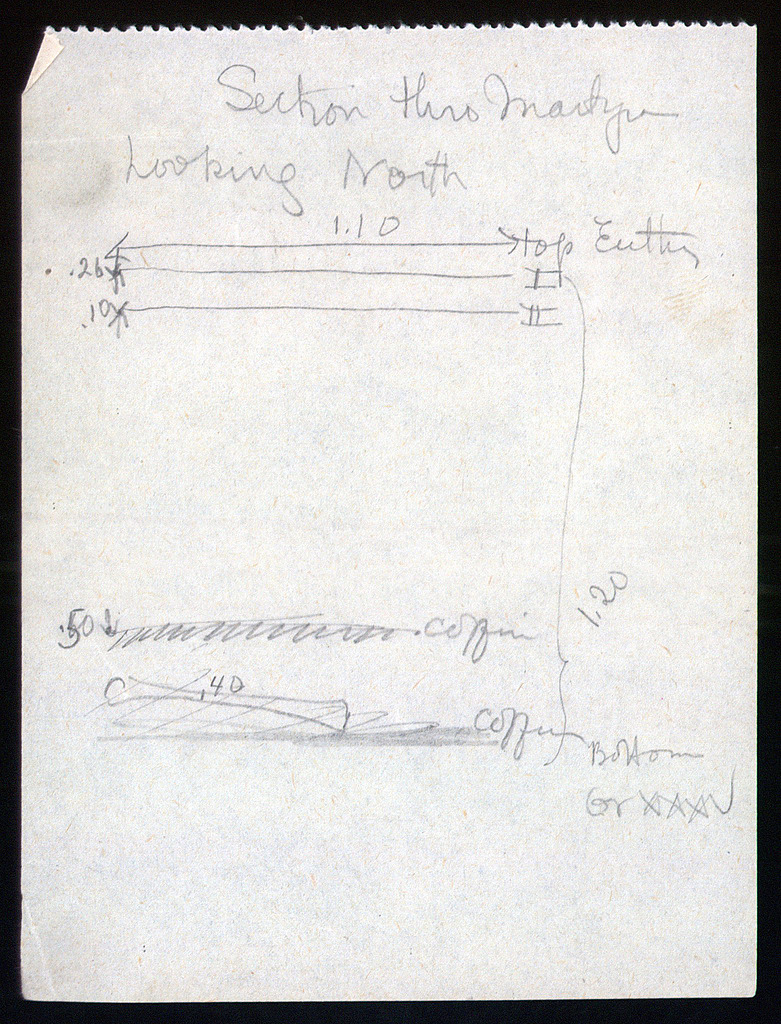 Section thro Martyr
Looking North
1.10
top
.26 I
.19 II
1.20
.50 coffin
.40
coffin
Bottom
Gr XXXV